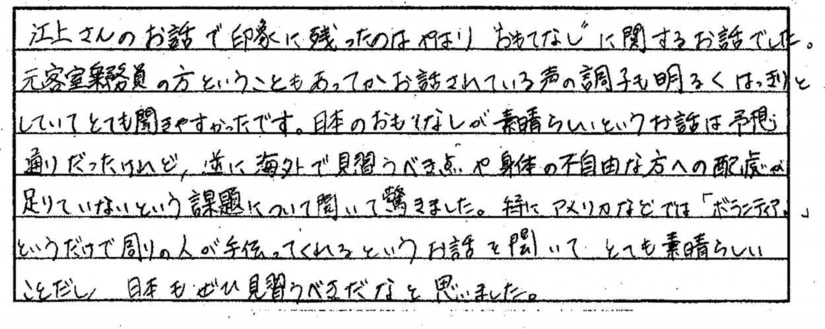 江上さんのお話で印象に残ったのはやはり"おもてなし"に関するお話でした。
元客室乗務員の方ということもあってかお話されている声の調子も明るくはっきりと
していてとても聞きやすかったです。日本のおもてなしが素晴らしいというお話は予想
通りだったけれど、逆に海外で見習うべき点や身体の不自由な方への配慮が
足りていないという課題について聞いて驚きました。特にアメリカなどでは「ボランティア。」
というだけで周りの人が手伝ってくれるというお話を聞いてとても素晴らしい
ことだし、日本もぜひ見習うべきだなと思いました。